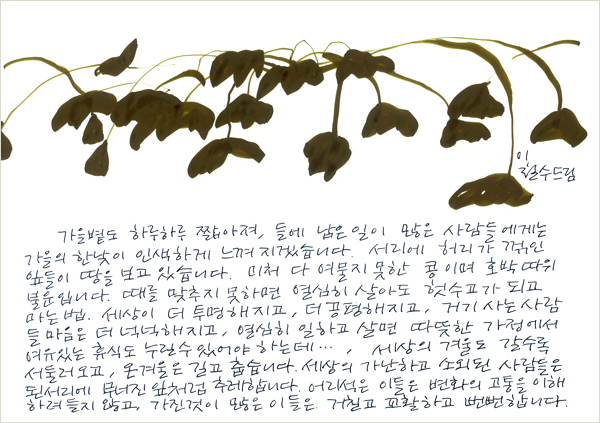 이
철수드림
가을볕도 하루하루 짧아져, 들에 남은 일이 많은 사람들에게는
가을의 한낮이 인색하게 느껴지겠습니다. 서리에 허리가 꺾인
잎들이 땅을 보고 있습니다. 미처 다 여물지 못한 콩이며 호박 따위
불운입니다. 때를 맞추지 못하면 열심히 살아도 헛수고가 되고
마는 법. 세상이 더 투명해지고, 더 공평해지고, 거기 사는 사람
들 마음은 더 넉넉해지고, 열심히 일하고 살면 따뜻한 가정에서
여유있는 휴식도 누릴 수 있어야 하는데…, 세상의 겨울도 갈수록
서둘러오고, 온겨울은 길고 춥습니다. 세상의 가난하고 소외된 사람들은
된서리에 무너진 잎처럼 추레합니다. 어리석은 이들은 변화의 고통을 이해
하려 들지 않고, 가진것이 많은 이들은 거칠고 교활하고 뻔뻔합니다.